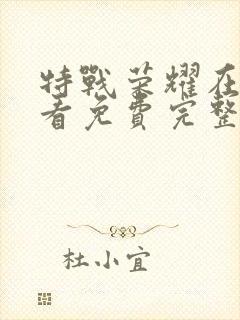 特戰荣耀在
看免費完整
杜小宜